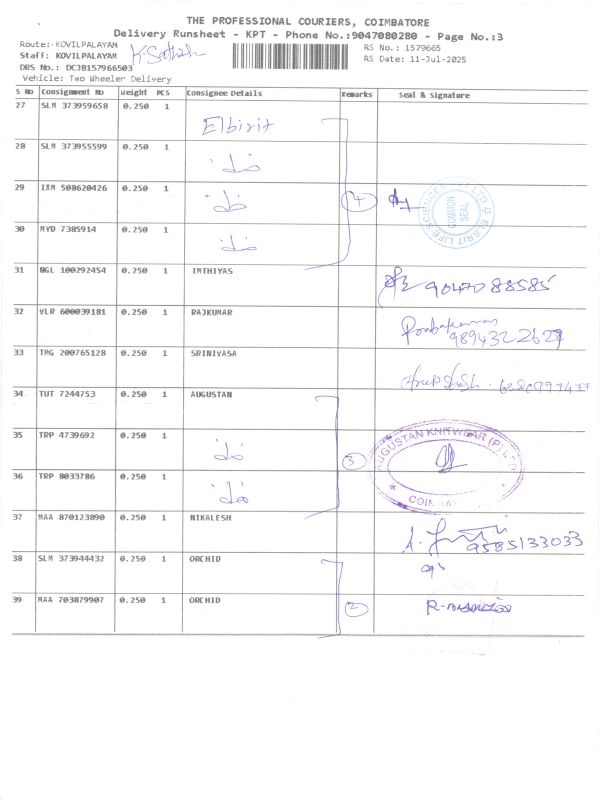 THE PROFESSIONAL COURIERS, COIMBATORE
Delivery Runsheet - KPT - Phone No.:9047080280 - Page No.:3
Route:-KOVILPALAYAM
RS No.: 1579665
Staff: KOVILPALAYAM K. Sathish
RS Date: 11-Jul-2025
DRS No.: DCJB157966503
Vehicle: Two Wheeler Delivery
S No Consignment No Weight PCS Consignee Details Remarks Seal & Signature
27 SLM 373959658 0.250 1 Elbirit
28 SLM 373955599 0.250 1
29 IXM 508620426 0.250 1 4
ELBRIT LIFE SCIENCES PVT LTD
COMMON SEAL
30 MYD 7385914 0.250 1
31 NGL 100292454 0.250 1 IMTHIYAS 9047088585
32 VLR 600039181 0.250 1 RAJKUMAR 9894322627
33 TMG 200765128 0.250 1 SRINIVASA
34 TUT 7244753 0.250 1 AUGUSTAN
35 TRP 4739692 0.250 1 3
AUGUSTAN KNITWEAR (P) LTD
36 TRP 8033786 0.250 1
37 MAA 870123890 0.250 1 NIKALESH 9585133033
38 SLM 373944432 0.250 1 ORCHID
39 MAA 703879907 0.250 1 ORCHID 2